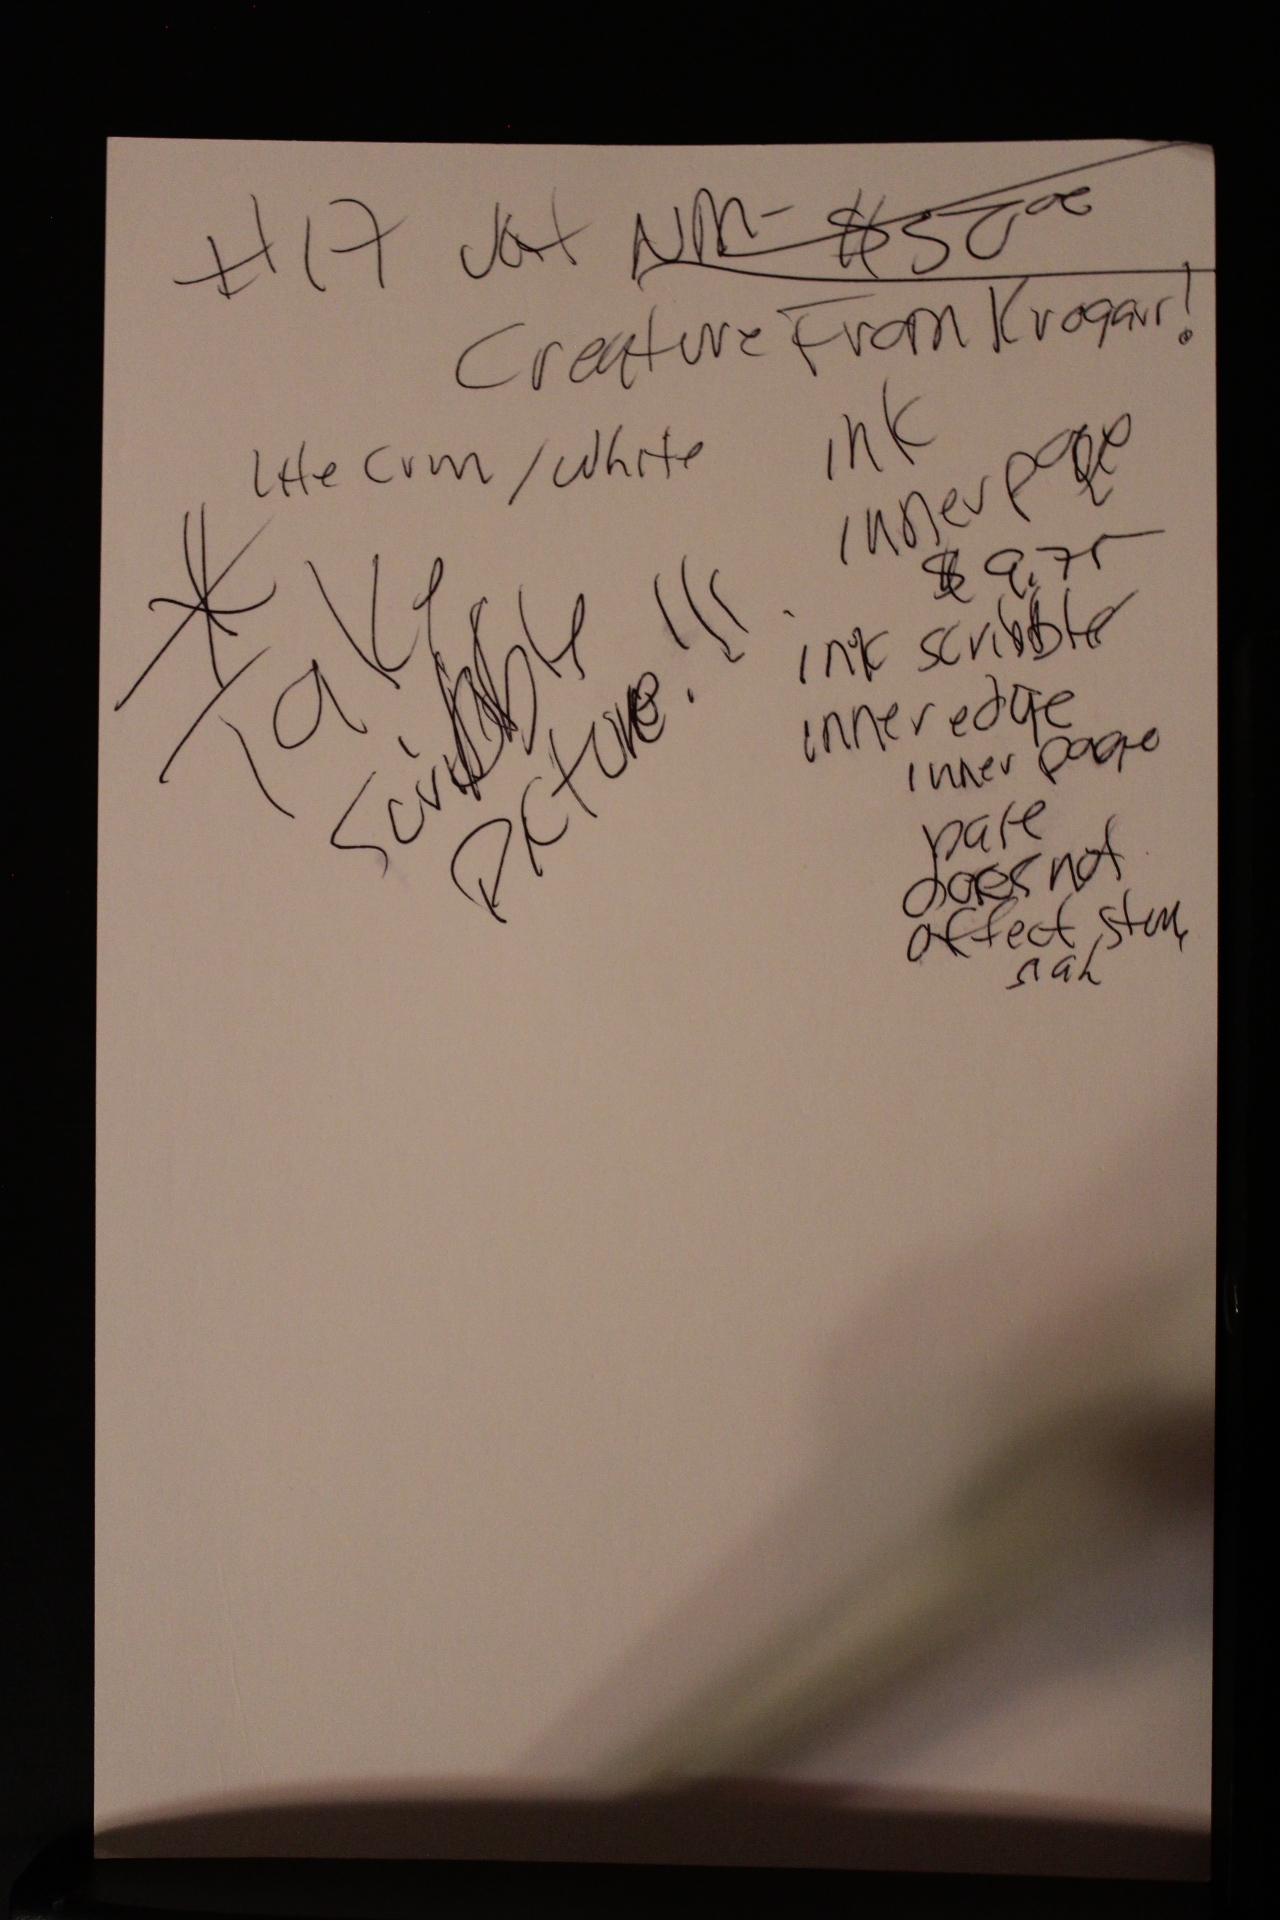 #17 NM- $50
Creature From Krogarr!
Lite Crm/White
ink
inner page
$9.75
ink scribble
inner edge
inner page
page
does not
affect story
* Take
scribble
picture!!!